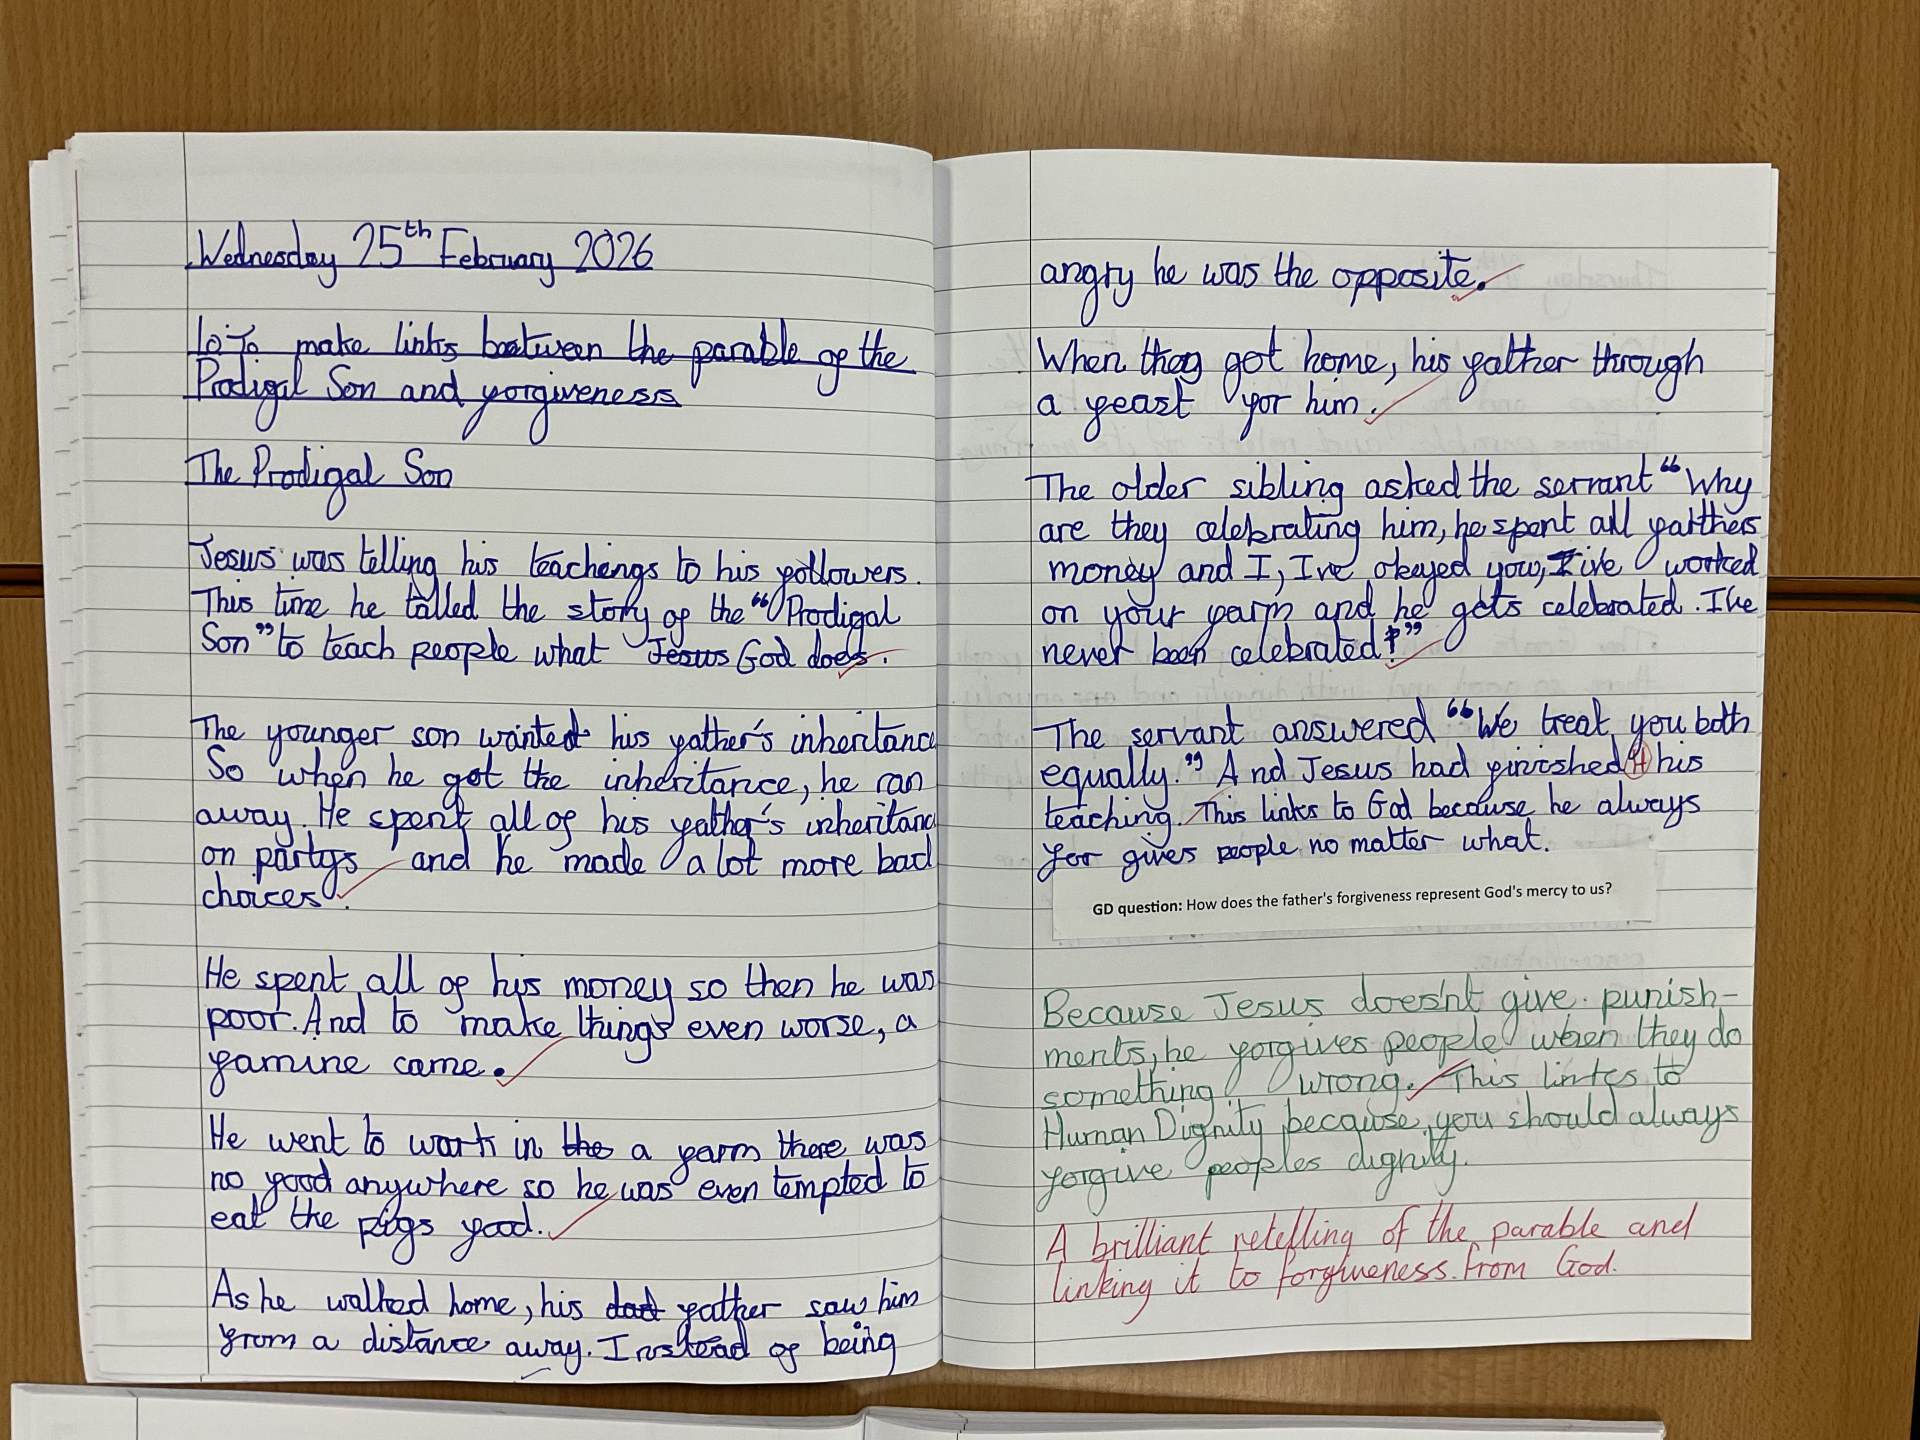 Wednesday 25th February 2026
Lo: To make links between the parable of the
Prodigal Son and forgiveness
The Prodigal Son
Jesus was telling his teachings to his followers.
This time he talled the story of the "Prodigal
Son" to teach people what Jesus God does.
The younger son wanted his father's inheritance
So when he got the inheritance, he ran
away. He spent all of his father's inheritanc
on partys and he made a lot more bad
choices.
He spent all of his money so then he was
poor. And to make things even worse, a
famine came.
He went to work in the a farm there was
no food anywhere so he was even tempted to
eat the pigs food.
As he walked home, his dad father saw him
from a distance away. Instead of being
angry he was the opposite.
When they got home, his father through
a feast for him.
The older sibling asked the servant "Why
are they celebrating him, he spent all farthers
money and I, I've obeyed you, I've worked
on your farm and he gets celebrated. I've
never been celebrated!"
The servant answered "We treat you both
equally." And Jesus had finished his
teaching. This links to God because he always
for gives people no matter what.
GD question: How does the father's forgiveness represent God's mercy to us?
Because Jesus does'nt give punish-
ments, he forgives people when they do
something wrong. This links to
Human Dignity because you should always
forgive peoples dignity.
A brilliant retelling of the parable and
linking it to forgiveness from God.